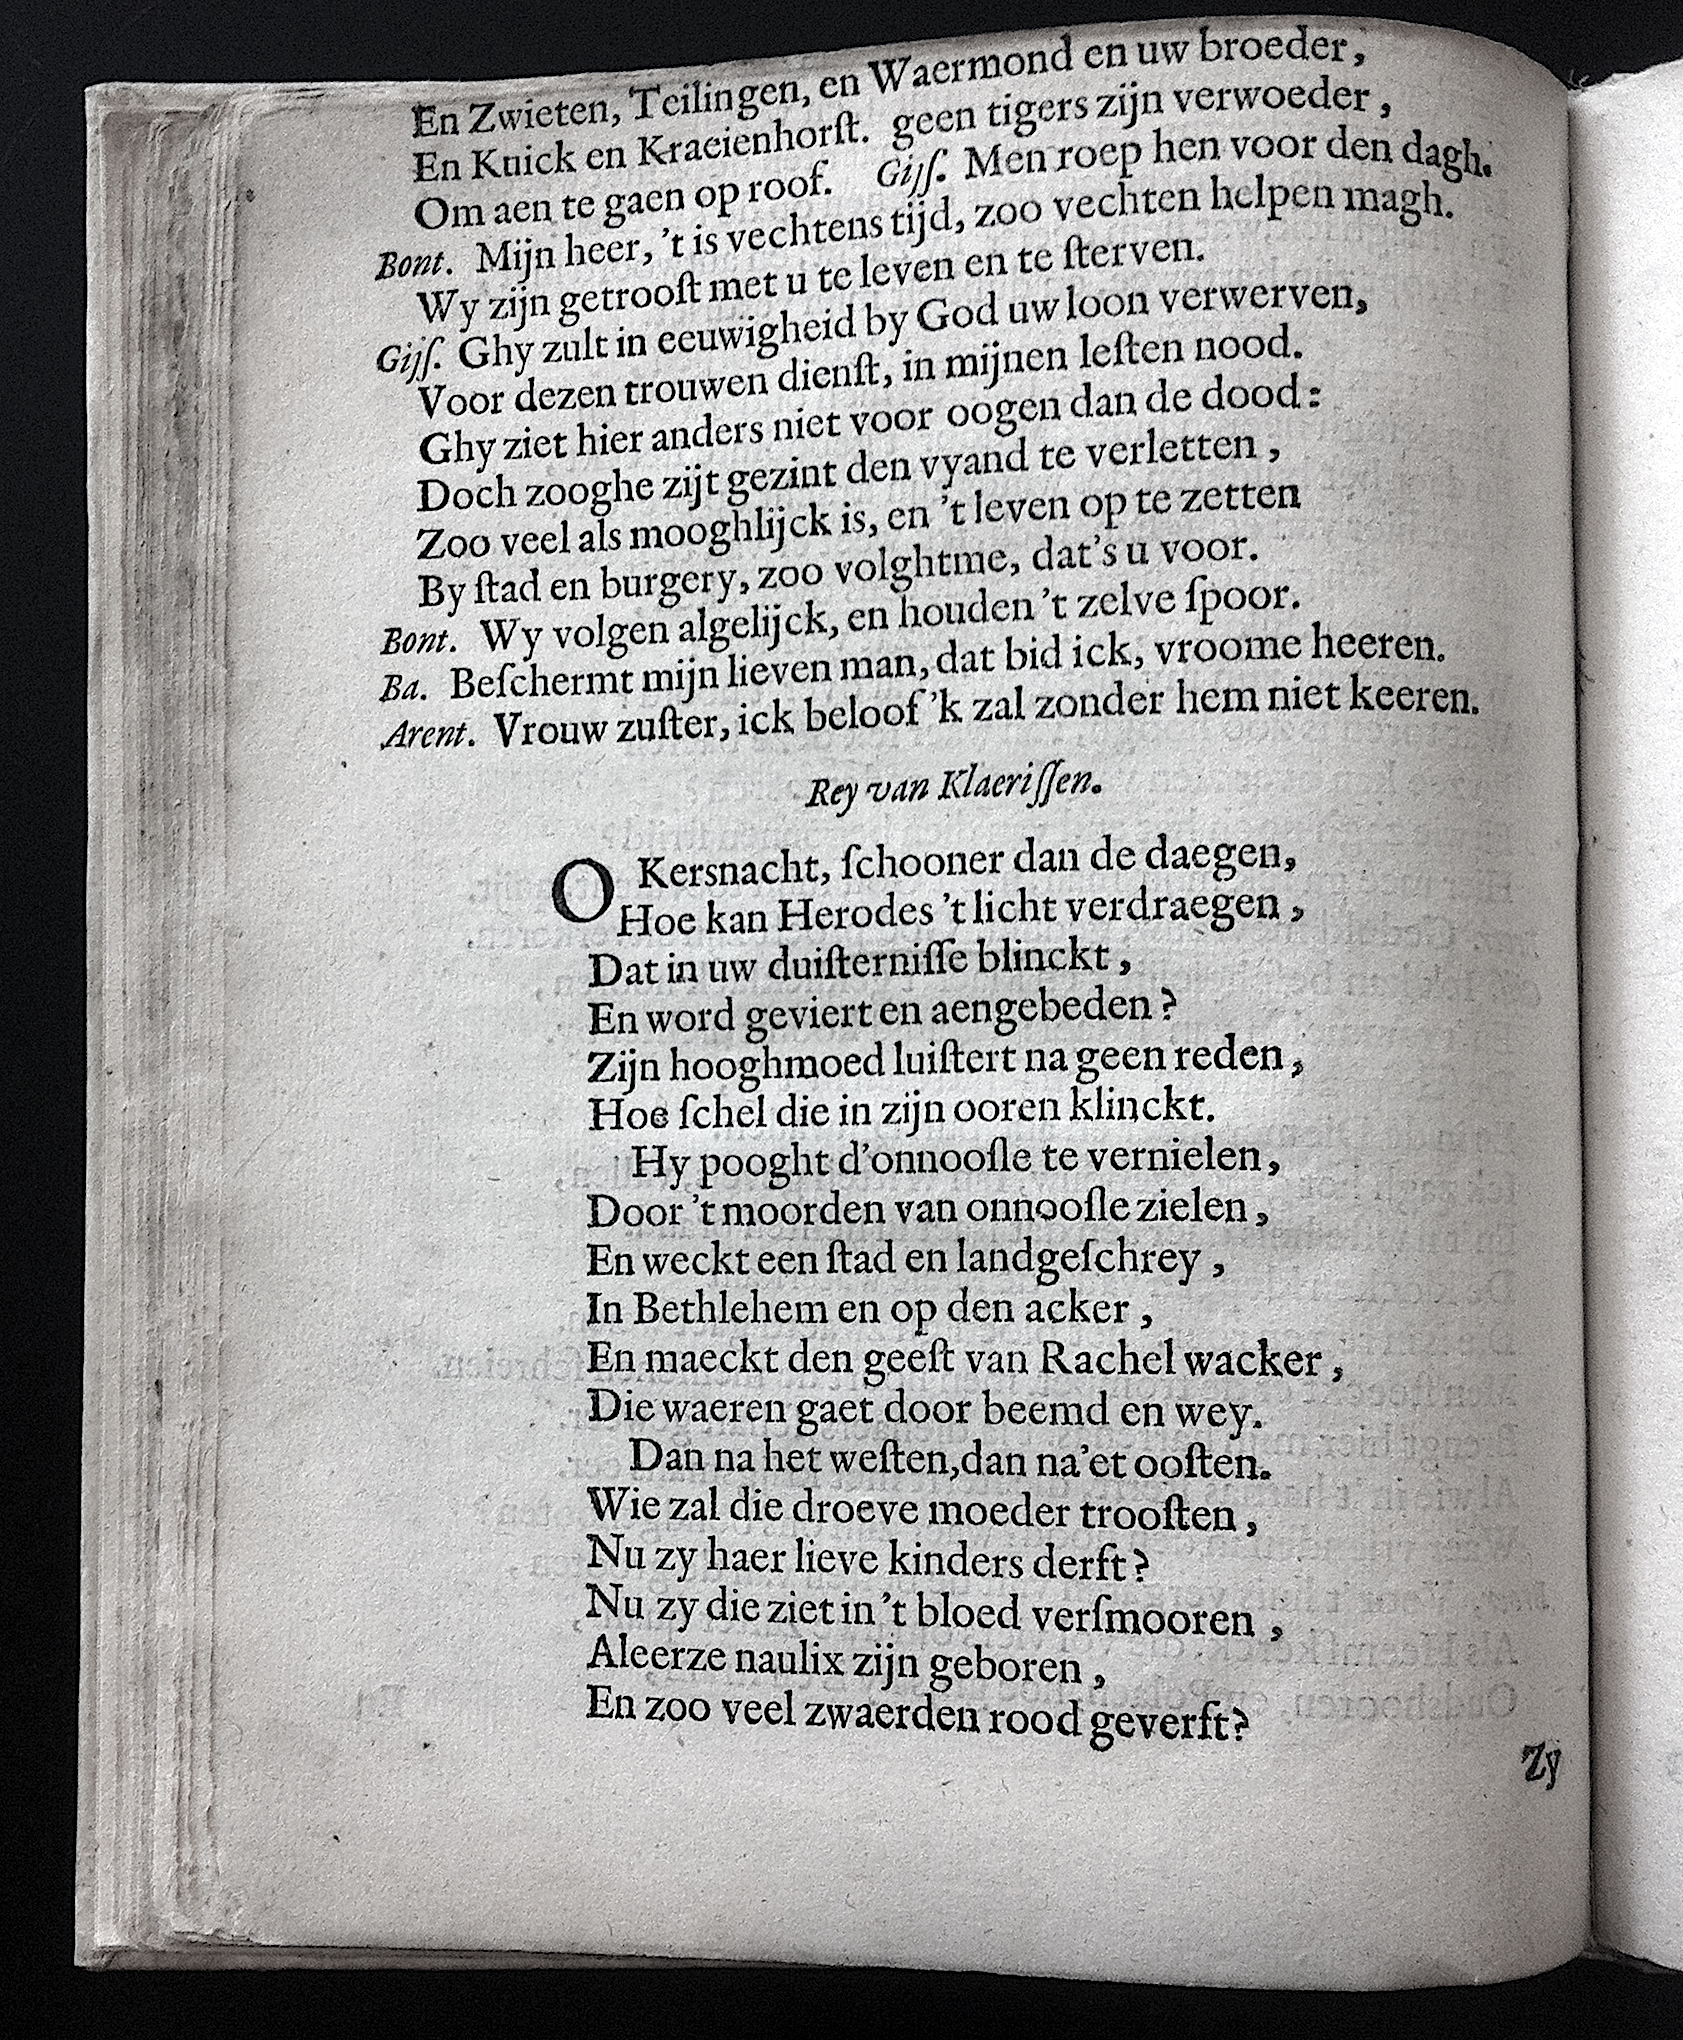 En Zwieten, Teilingen, en Waermond en uw broeder,
En Kuick en Kraeienhorſt. geen tigers zijn verwoeder,
Om aen te gaen op roof. Gijſ. Men roep hen voor den dagh.
Bont. Mijn heer, 't is vechtens tijd, zoo vechten helpen magh.
Wy zijn getrooſt met u te leven en te ſterven.
Gijſ. Ghy zult in eeuwigheid by God uw loon verwerven,
Voor dezen trouwen dienſt, in mijnen leſten nood.
Ghy ziet hier anders niet voor oogen dan de dood:
Doch zooghe zijt gezint den vyand te verletten,
Zoo veel als mooghlijck is, en 't leven op te zetten
By ſtad en burgery, zoo volghtme, dat's u voor.
Bont. Wy volgen algelijck, en houden 't zelve ſpoor.
Ba. Beſchermt mijn lieven man, dat bid ick, vroome heeren.
Arent. Vrouw zuſter, ick beloof 'k zal zonder hem niet keeren.
Rey van Klaeriſſen.
O Kersnacht, ſchooner dan de daegen,
Hoe kan Herodes 't licht verdraegen,
Dat in uw duiſterniſſe blinckt,
En word geviert en aengebeden?
Zijn hooghmoed luiſtert na geen reden,
Hoe ſchel die in zijn ooren klinckt.
Hy pooght d'onnooſle te vernielen,
Door 't moorden van onnooſle zielen,
En weckt een ſtad en landgeſchrey,
In Bethlehem en op den acker,
En maeckt den geeſt van Rachel wacker,
Die waeren gaet door beemd en wey.
Dan na het weſten, dan na'et ooſten.
Wie zal die droeve moeder trooſten,
Nu zy haer lieve kinders derft?
Nu zy die ziet in 't bloed verſmooren,
Aleerze naulix zijn geboren,
En zoo veel zwaerden rood geverft?
Zy